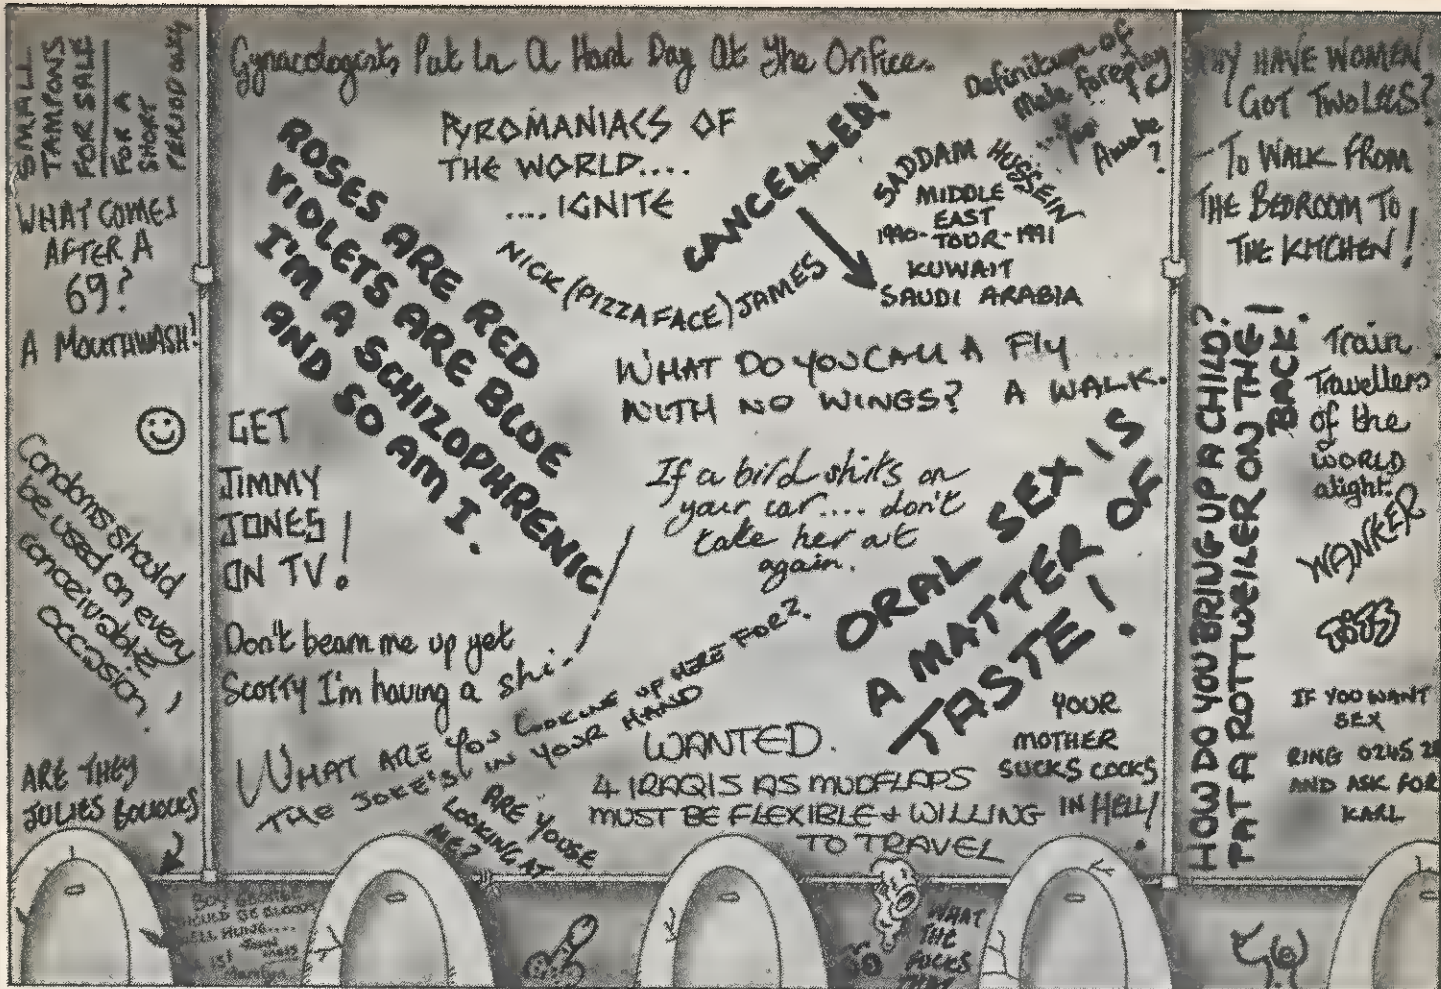 SMALL
TAMPONS
FOR SALE
FOR A
SHORT
PERIOD ONLY
WHAT COMES
AFTER A
69?
A MOUTHWASH!
Condoms should
be used on every
conceivable
occasion!
ARE THEY
JULIES BOLLOCKS
Gynacologists Put In A Hard Day At The Orifice.
PYROMANIACS OF
THE WORLD....
.... IGNITE
ROSES ARE RED
VIOLETS ARE BLUE
I'M A SCHIZOPHRENIC
AND SO AM I.
NICK (PIZZA FACE) JAMES
CANCELLED!
Definition of
Male foreplay
....You
Awake
?
SADDAM HUSSEIN
MIDDLE
EAST
1990- TOUR -1991
KUWAIT
SAUDI ARABIA
WHAT DO YOU CALL A FLY
WITH NO WINGS? A WALK.
GET
JIMMY
JONES
ON TV!
If a bird shits on
your car.... don't
take her out
again.
Don't beam me up yet
SCOTTY I'm having a shi.
ORAL SEX IS
A MATTER OF
TASTE!
WHAT ARE YOU LOOKING UP HERE FOR?
THE JOKE'S IN YOUR HAND
ARE YOUSE
LOOKING AT
ME?
WANTED.
4 IRAQIS AS MUDFLAPS
MUST BE FLEXIBLE + WILLING
TO TRAVEL
YOUR
MOTHER
SUCKS COCKS
IN HELL!
BOY GEORGE
SHOULD BE BLOODY
WELL HUNG....
WHAT
THE
FUCKS
THAT
WHY HAVE WOMEN
GOT TWO LEGS?
- TO WALK FROM
THE BEDROOM TO
THE KITCHEN!
HOW DO YOU BRING UP A CHILD?
PAT A ROTTWEILER ON THE
BACK!
Train
Travellers
of the
WORLD
alight.
WANKER
IF YOU WANT
SEX
RING 0245 28
AND ASK FOR
KARL